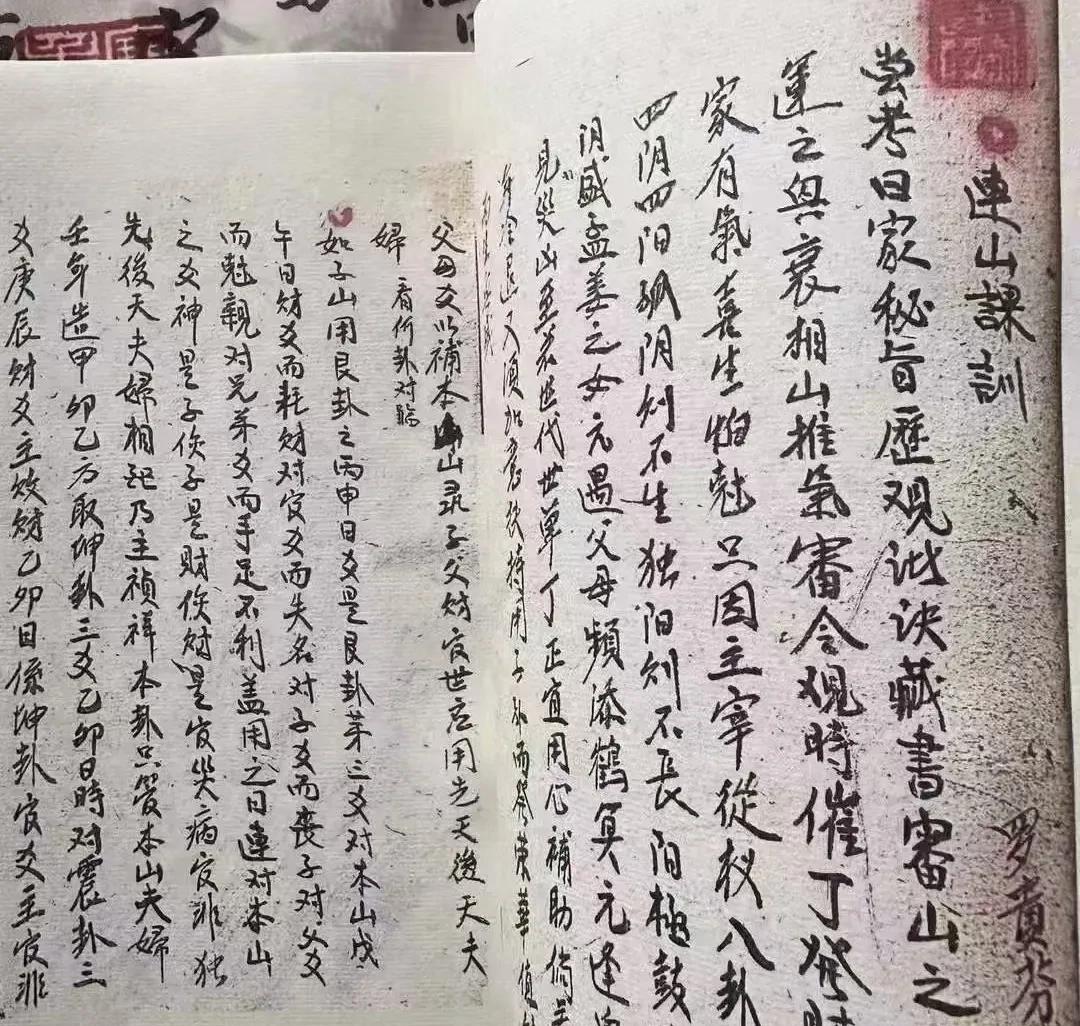 連山課訓
罗貴芬
尝考日家秘旨歷观诸诀藏書審山之
運之與衰相山推氣審令观時催丁發財
家有氣喜生怕尅只因主宰從权八卦
四阴四阳孤阴则不生独阳则不長阳極鼓
阴盛孟姜之女元遇父母頻添鶴算元逢
見災山至衰世代世單丁正宜用父補助倘
父母爻以補本山山录子父财官世应用先天後天夫
婦 看何卦对臨
如子山用艮卦之丙申日爻是艮卦第三爻对本山戊
午日财爻而耗财对官爻而失名对子爻而喪子对父爻
而尅親对兄弟爻而手足不利盖用之日連对本山
之爻神是子候子是財候财是官災病官非独
先後天夫婦相配乃主禎祥本卦只管本山夫婦
壬年造甲卯乙方取坤卦三爻乙卯日時对震卦三
爻庚辰财爻主败财乙卯日係坤卦官爻主官非